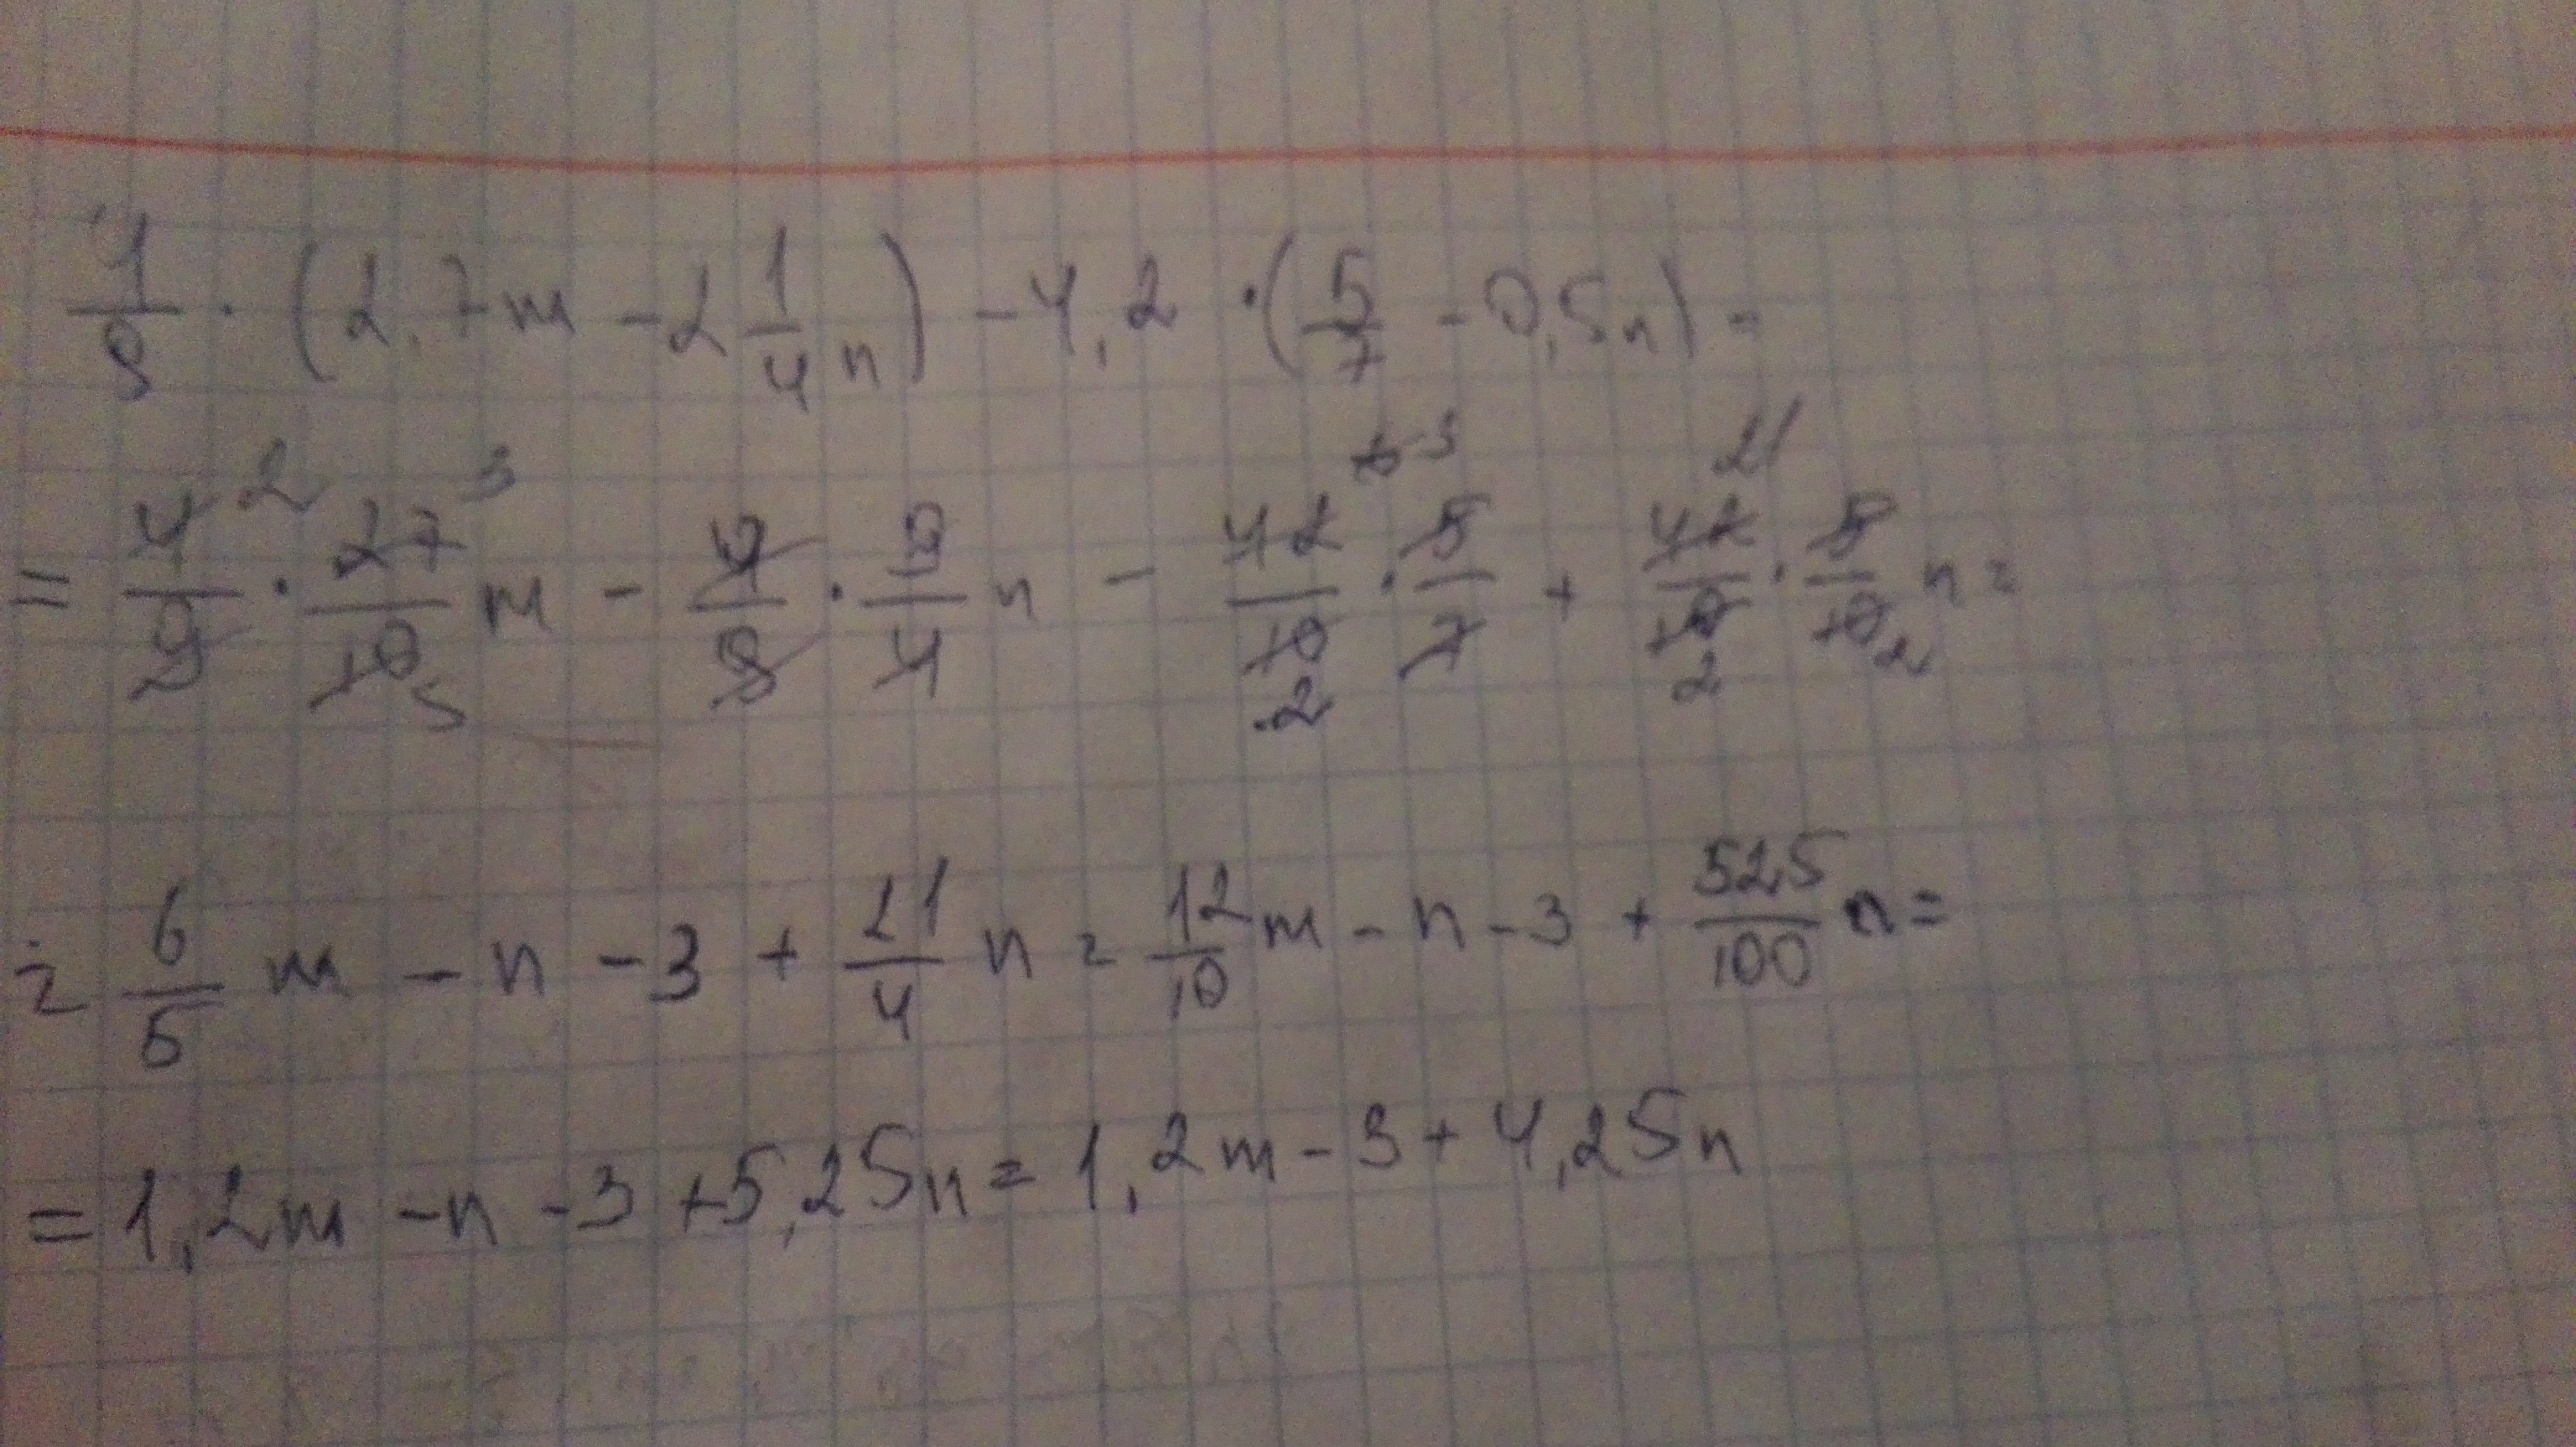 1/9 · (2,7m - 2 1/4 n) - 4,2 · (5/7 - 0,5n) =
= 4/9 · 27/10 m - 4/9 · 9/4 n - 42/10 · 5/7 + 42/10 · 5/10 n =
= 6/5 m - n - 3 + 21/4 n = 12/10 m - n - 3 + 525/100 n =
= 1,2m - n - 3 + 5,25n = 1,2m - 3 + 4,25n